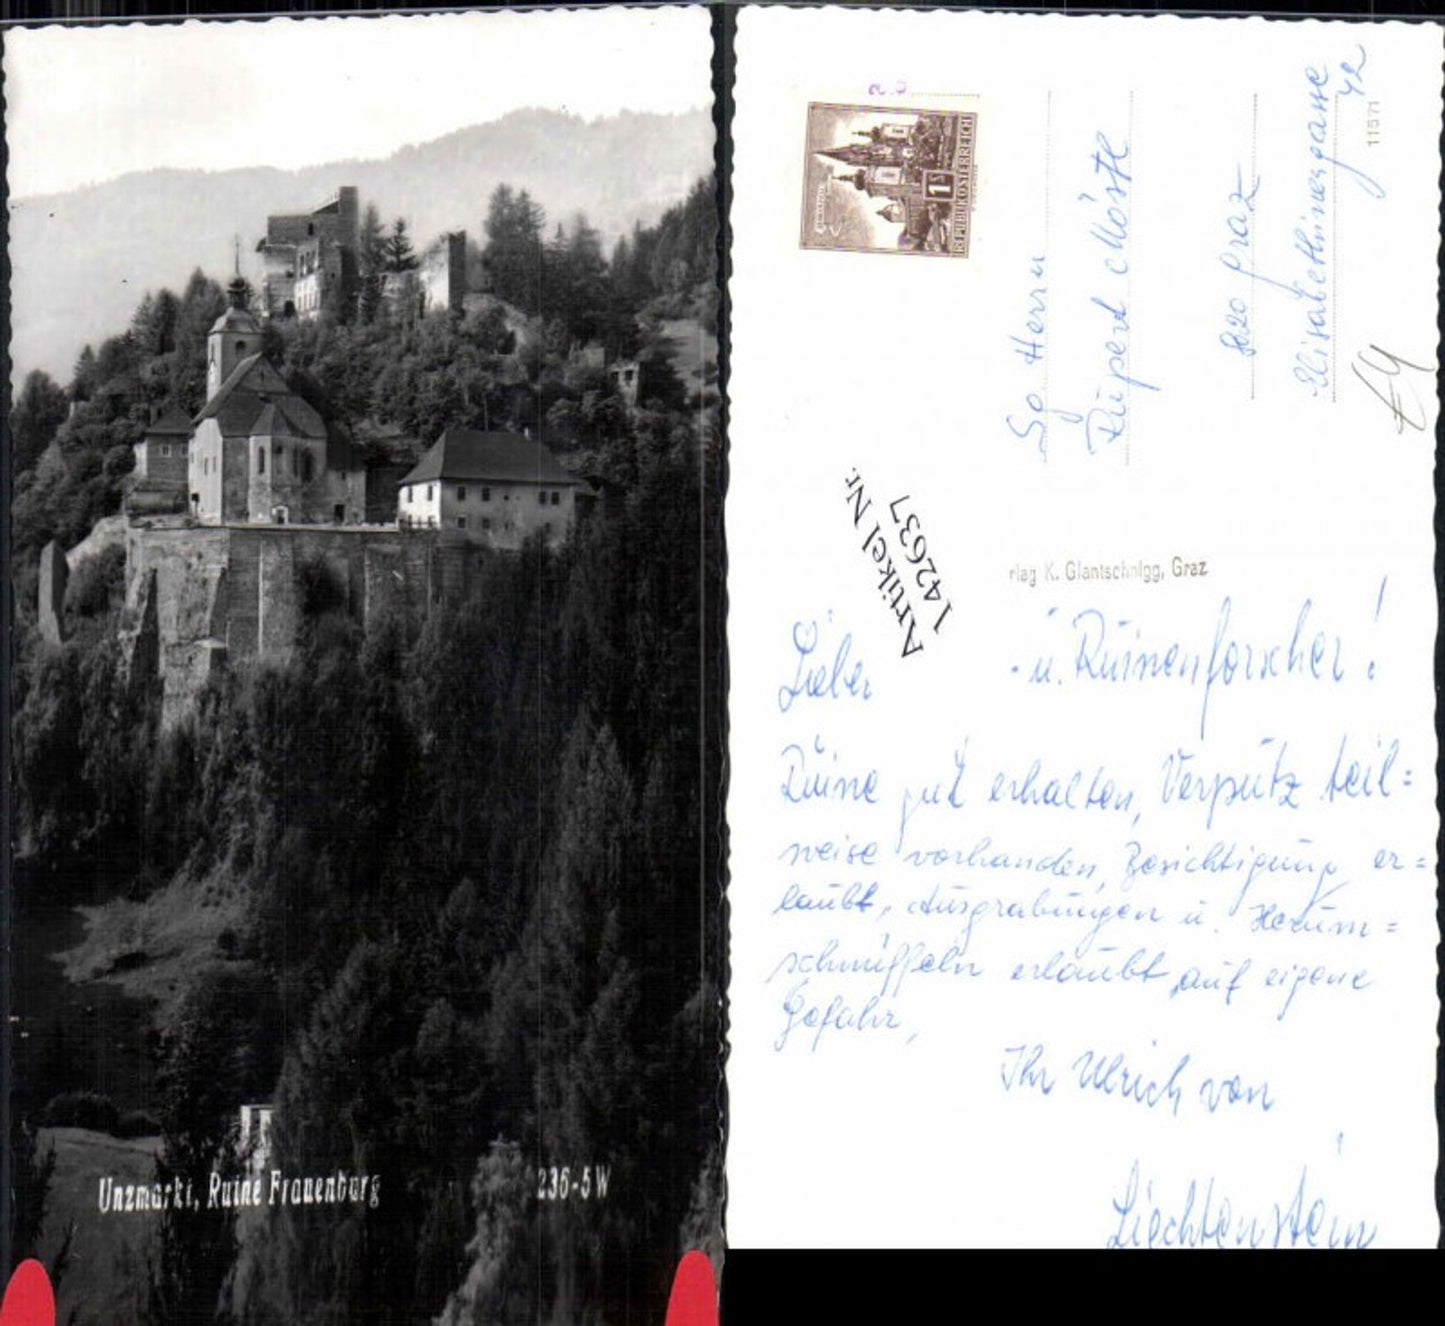 Unzmarkt, Ruine Frauenburg 236-5 W
1 S
REPUBLIK ÖSTERREICH
Sg. Herrn
Rupert Möstl
8020 Graz
Elisabethinergasse
42
11571
Artikel Nr.
1426337
rlag K. Glantschnigg, Graz
Lieber - u. Ruinenforscher!
Ruine gut erhalten, Verputz teil=
weise vorhanden, Besichtigung er=
laubt, Ausgrabungen u. Herum=
schnüffeln erlaubt auf eigene
Gefahr,
Ihr Ulrich von
Liechtenstein